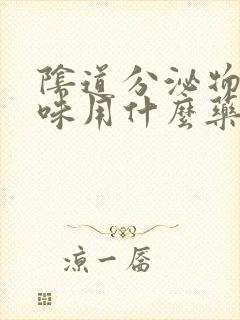 陰道分泌物
味用什麼藥
涼一眉